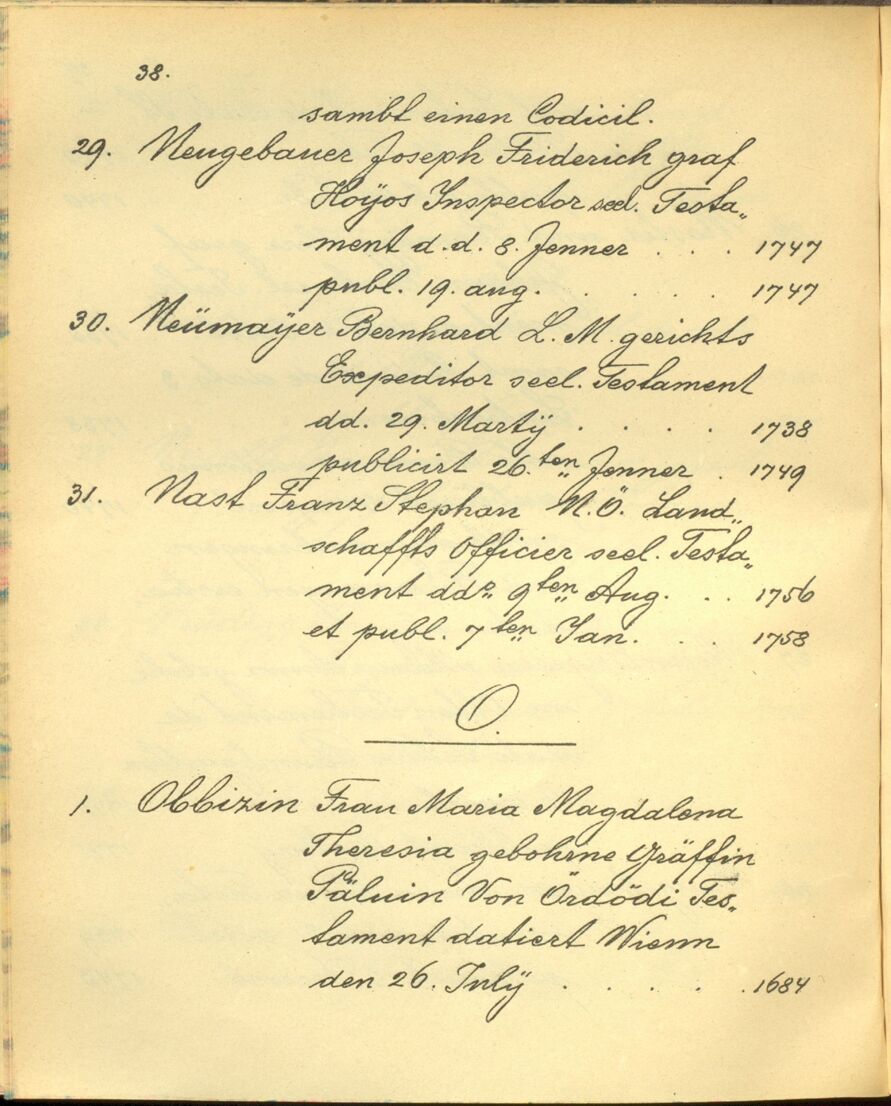 38.
sambt einen Codicil.
29. Neugebauer Joseph Friderich graf
Hoÿos Inspector seel. Testa„
ment d. d. 8. Jenner . . . 1747
publ. 19. aug. . . . . 1747
30. Neümaÿer Bernhard L. M. gerichts
Expeditor seel. Testament
dd. 29. Martÿ . . . . 1738
publicirt 26.ten Jenner . 1749
31. Nast Franz Stephan N. Ö. Land„
schaffts Officier seel. Testa„
ment dd° 9ten Aug. . . 1756
et publ. 7ten Jan. . . 1758
O.
1. Obbizin Frau Maria Magdalena
Theresia gebohrne Gräffin
Päluin Von Ördödi Tes„
tament datiert Wienn
den 26. Julÿ . . . . . 1684